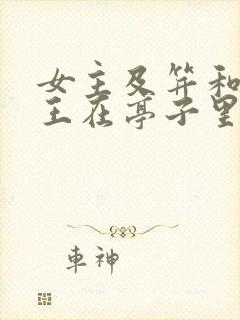 女主及笄和
王在亭子里
車神